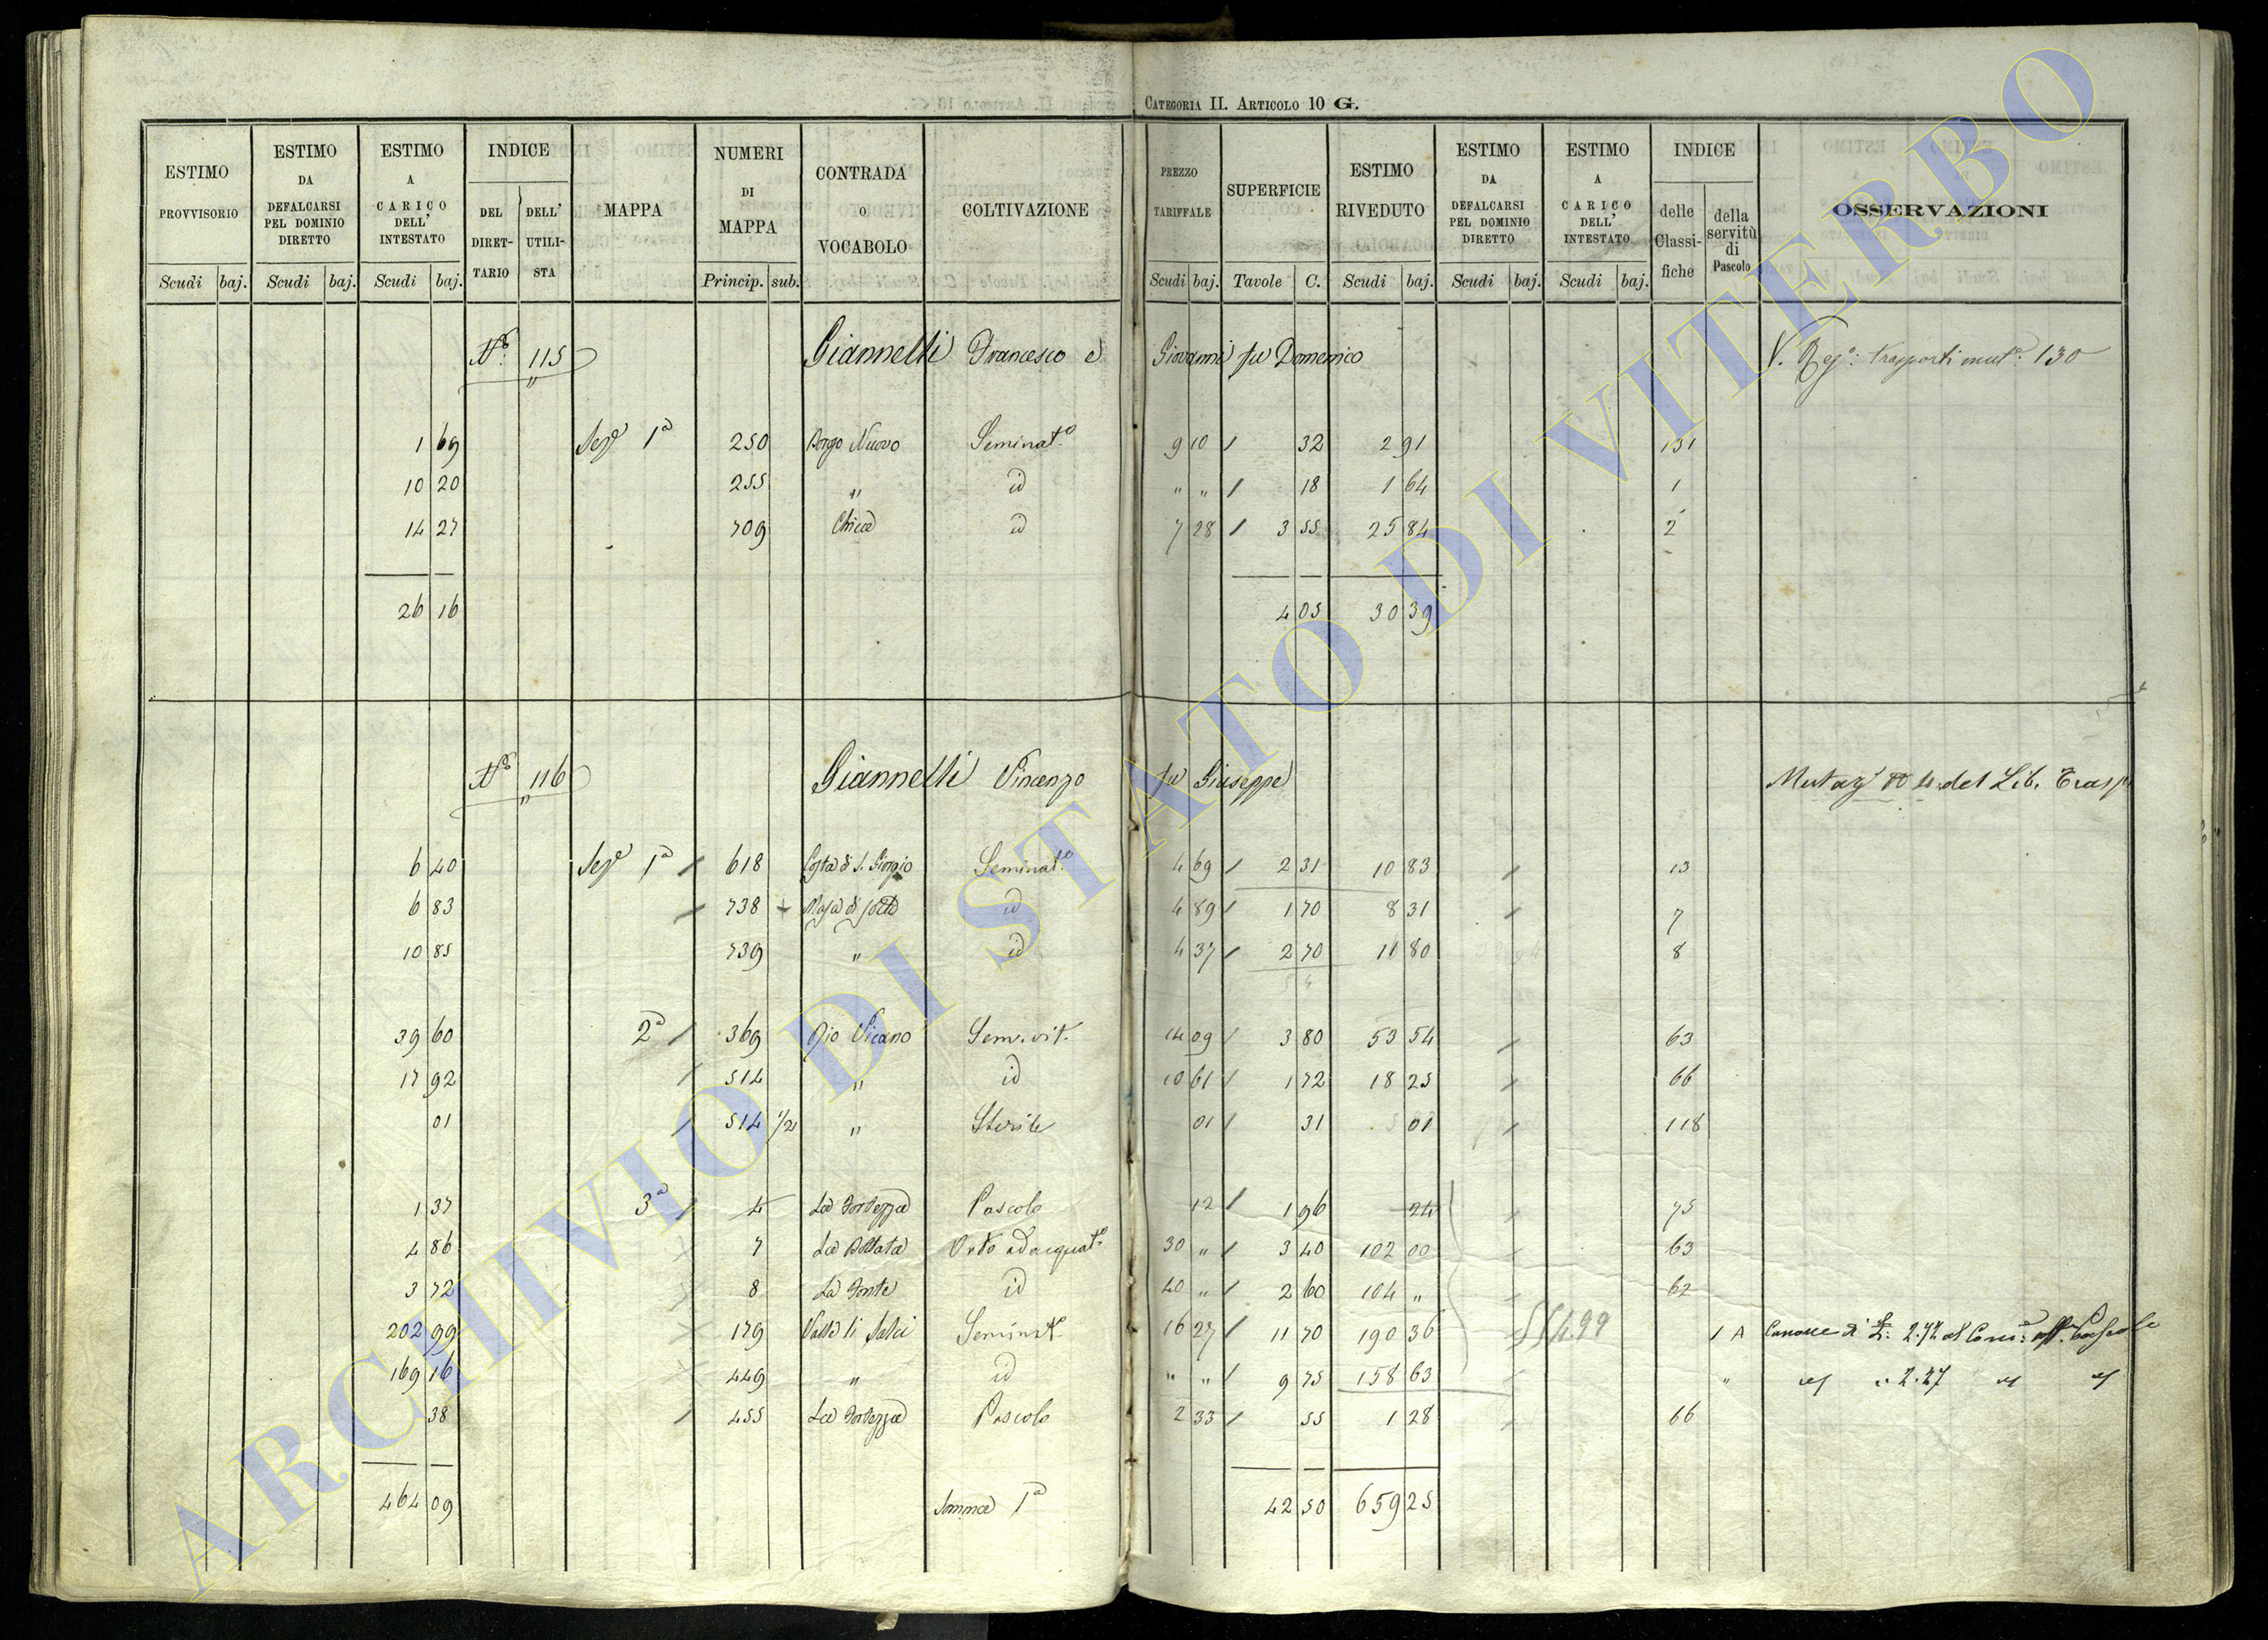 CATEGORIA II. ARTICOLO 10 G.
ESTIMO PROVVISORIO Scudi baj. ESTIMO DA DEFALCARSI PEL DOMINIO DIRETTO Scudi baj. ESTIMO A CARICO DELL' INTESTATO Scudi baj. INDICE DEL DIRET-TARIO DELL' UTILI-STA MAPPA NUMERI DI MAPPA Princip. sub. CONTRADA O VOCABOLO COLTIVAZIONE PREZZO TARIFFALE Scudi baj. SUPERFICIE Tavole C. ESTIMO RIVEDUTO Scudi baj. ESTIMO DA DEFALCARSI PEL DOMINIO DIRETTO Scudi baj. ESTIMO A CARICO DELL' INTESTATO Scudi baj. INDICE delle Classi-fiche della servitù di Pascolo OSSERVAZIONI
No. 115 Giannelli Francesco e Giovanni fu Domenico V. Rego: trasporti mut.e: 130
1 69 Seze 1a 250 Borgo Nuovo Seminato 9 10 / 32 2 91 131
10 20 255 " id " " / 18 1 64 1
14 27 709 Chiea id 7 28 / 3 55 25 84 2
26 16 4 05 30 39
No. 116 Giannelli Vincenzo fu Giuseppe del Lib. Trasp
6 40 Seze 1a / 618 Costa di S. Giorgio Seminato 4 69 / 2 31 10 83 / 13
6 83 / 738 id 4 89 / 1 70 8 31 / 7
10 85 739 " id 4 37 / 2 70 11 80 8
39 60 2a / 369 Rio Vicano Sem. vit. 14 09 / 3 80 53 54 / 63
17 92 / 514 " id 10 61 / 1 72 18 25 / 66
01 / 514 1/2 " Sterile 01 / 31 01 / 118
1 37 3a / 4 La Fortezza Pascolo 12 / 1 96 24 / 75
4 86 7 La Bottata Orto adacquato 30 " / 3 40 102 00 63
3 72 8 La Fonte id 40 " / 2 60 104 " 62
202 99 179 Valle li Salci Seminato 16 27 / 11 70 190 36 554.99 1 A Canone di £: 2.72 al Com.e Pascolo
169 16 449 " id " " / 9 75 158 63 " " 2.27
38 / 455 La Fortezza Pascolo 2 33 / 55 1 28 66
464 09 Somma 1a 42 50 659 25
ARCHIVIO DI STATO DI VITERBO